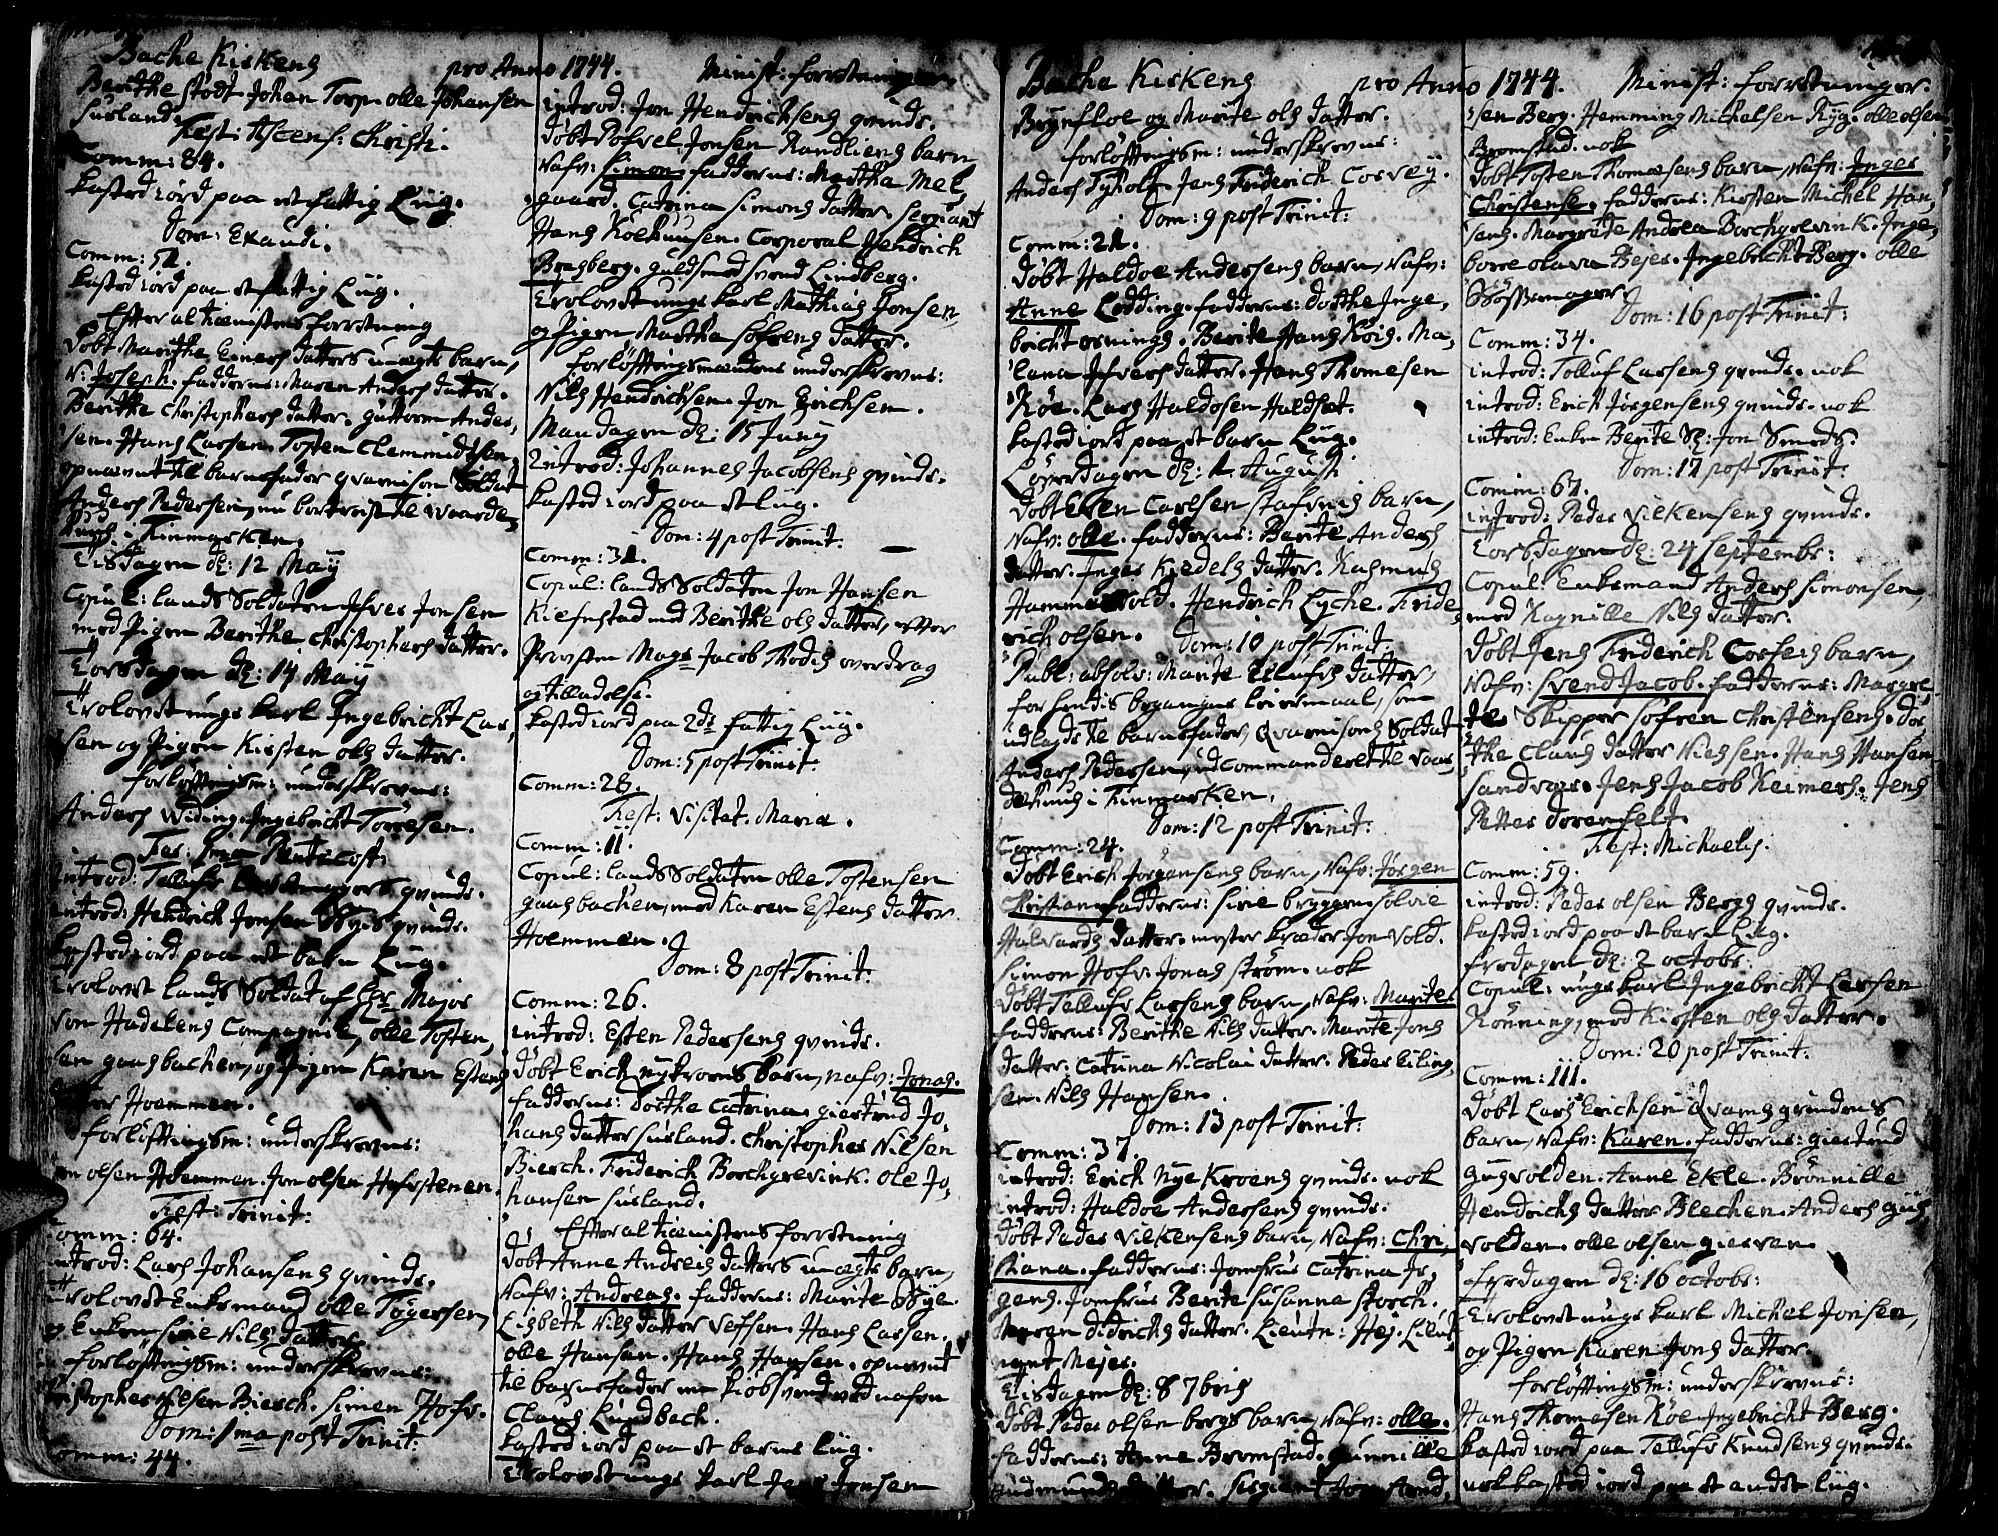 Bache Kirkens pro Anno 1744. Minist: forretninger
Berithe stødt Johan Torp. olle Johansen
Susland.
Fest: Ascens: Christi.
Comm: 84.
kasted iord paa et fattig Liig.
Dom: Exaudi.
Comm: 52.
kasted iord paa et fattig Liig.
Effter al tienistens forretning
Døbt Marithe Einers datters uægte barn,
N: Joseph. fadderne: Maren Anders datter.
Berithe Christophers datter. guttorm Anders,
sen. Hans Larsen. Tosten Clemmidtsen.
opnævnt til barnefader qvarnison Soldat
Anders Pedersen, nu bortreist til Waarde,
huus i Finmarken.
Tisdagen d: 12 May
Copul: lands Soldaten Ifver Jonsen
med Pigen Berithe Christophers datter.
Torsdagen d: 14 May
Trolovet ungs karl Ingebricht Lar,
sen og Pigen Kirsten ols datter.
forløfftingsm: underskrevne:
Anders Widing. Ingebricht Torresen.
Fer: 1ma Pentecost:
introd: Tellufs qvinde.
introd: Hendrich Jonsen qvinde.
kasted iord paa et barn Liig.
Trolovet lands Soldat af Hr Major
von Hadelens Compagnie, olle Tosten,
sen gaasbachen, og Pigen Karen Estens
datter Hoemmen.
forløfftingsm: underskrevne:
olsen Hoemmen. Jon olsen Hofstenen.
Fest: Trinit:
Comm: 64.
introd: Lars Johansens qvinde.
Trolovet Enkemand olle Tøgersen,
og Enken sirie Nils datter
forløfftingsm: underskrevne:
Christopher Nilsen Biersch. Simen Hofv.
Dom: 1ma post Trinit:
Comm: 44.
introd: Jon Hendrichsens qvinde.
Døbt Pofvel Jonsen Randliens barn
Nafv: Simon. fadderne: Martha Mel,
gaard. Catrina Simons datter. Sergiant
Hans Koelhuusen. Corporal Hendrich
Bragberg. guldsmed svend Lindberg.
Trolovet ungs karl Mathias Jonsen,
og Pigen Martha Sofrens datter.
forløfftingsmændene underskrevne:
Nils Hendrichsen. Jon Erichsen.
Mandagen d: 15 Juny
Introd: Johannes Jacobsens qvinde.
kasted iord paa et Liig.
Dom: 4 post Trinit:
Comm: 32.
Copul: lands Soldaten Jon Hansen
Kiefnstad med Berithe ols datter, effter
Provsten Mags Jacob Rodis overdrag
og tilladelse.
kasted iord paa 2de fattig Liig.
Dom: 5 post Trinit:
Comm: 28.
Fest: Visitat. Mariæ.
Comm: 11.
Copul: lands Soldaten olle Tostensen
gaasbachen, med Karen Estens datter
Hoemmen.
Dom: 8 post Trinit:
Comm: 26.
introd: Esten Pedersens qvinde.
Døbt Erich nykroens barn, nafv: Jonas.
fadderne: dorthe Catrina. giertrud Jo,
hans datter susland. Christopher Nilsen
Biersch. Friderich Borchgrevink. Ole Jo,
hansen susland.
Effter al tienistens forretning
Døbt Anne Andreis datters uægte barn,
Nafv: Andreas. fadderne: Marite Bye.
Lisbeth Nils datter Vefsen. Hans Larsen.
olle Hansen. Hans Hansen. opnævnt
til barnefader en kiøbsvend ved nafn
Claus Lundbach.
kasted iord paa et barns Liig.
Trolovet ungs karl Jens Jonsen
Bache Kirkens pro Anno 1744. Minist: forretninger.
Brynfloe og Marite ols datter.
forløfftingsm: underskrevne:
Anders Tyholt. Jens Friderich Corvey.
Dom: 9 post Trinit:
Comm: 21.
Døbt Haldoe Andersens barn, Nafv:
Anne Lodding. fadderne: dorthe Inge,
bricht ornings. Berite Hans Roig. Ma,
lena Ifvers datter. Hans Thomesen
Røe. Lars Haldosen Haldset.
kasted iord paa et barn Liig.
Løverdagen d: 1 Augusti
Døbt Even Carlsen stafvnes barn,
Nafv: olle. fadderne: Berite Anders
datter. Inger Kredels datter. Rasmus
Hammersvold. Hendrich Lyche. Fride,
rich olsen.
Dom: 10 post Trinit:
Publ: absolv: Marite Ellufs datter,
for hendes begangne leiermaal, som
udlagde til barnefader, Qvarnisons Soldat
Anders Pedersen, udcommanderet til Vaar,
dehuus i Finmarken.
Dom: 12 post Trinit:
Comm: 24.
Døbt Erich Jørgensens barn, Nafv: Jørgen
Christian. fadderne: sirie bryggen. sølvie
Halvards datter. mester skræder Jon Vold.
Simon Hofv. Jonas strøm. nok
Døbt Tellufs Larsens barn, Nafv: Marite.
fadderne: Berithe Nils datter. Marite Jons
datter. Catrina Nicolai datter. Peder Eiling,
sen. Nils Hansen.
Dom: 13 post Trinit:
Comm: 37.
introd: Erich Nye Kroens qvinde. nok
introd: Haldoe Andersens qvinde.
Døbt Peder Vilkensens barn, Nafv: Chri,
stiana. fadderne: Jomfrue Catrina Ir,
gens. Jomfrue Berite Susanna storch.
Maren didrichs datter. Lieutn: Hej. Lieut,
nant Mejer.
Tisdagen d: 8 7bris
Døbt Peder olsen bergs barn, Nafv: olle.
fadderne: Anne Bromstad. gunnille
gudmunds datter. Sergiant Jon Arnd,
sen Berg. Hemming Michelsen Ryg. olle olsen
Bromstad. nok
Døbt Tosten Thomesens barn, Nafv: Inger
Christense. fadderne: Kirsten Michel Han,
sens. Margrete Andrea Borchgrevink. Inge,
borre olava Bejer. Ingebricht Berg. olle
Skossemager
Dom: 16 post Trinit:
Comm: 34.
introd: Tolluf Larsens qvinde. nok
introd: Erich Jørgensens qvinde. nok
introd: Enken Berite Sl: Jon Smeds.
Dom: 17 post Trinit:
Comm: 67.
introd: Peder Vilkensens qvinde.
Torsdagen d: 24 Septembr:
Copul: Enkemand Anders Simonsen,
med Ragnille Nils datter.
Døbt Jens Friderich Corfeis barn,
Nafv: Svend Jacob. fadderne: Margre,
te Skipper Sofren Christensens. dor,
the Claus datter Nielsen. Hans Hansen
Sandvær. Jens Jacob Reimers. Jens
Petter dorenfelt.
Fest: Michaelis.
Comm: 59.
introd: Peder olsen Bergs qvinde.
kasted iord paa et barn Liig.
fredagen d: 2 octobr.
Copul: ungs karl Ingebricht Larsen
Rønning, med Kirsten ols datter.
Dom: 20 post Trinit:
Comm: 111.
Døbt Lars Erichsen Qvams qvindens
barn, Nafv: Karen. fadderne: giertrud
Hugsvolden. Anne Ekle. Brønnille
Hendrichs datter Blechen. Anders Hugs,
volden. olle olsen gierven.
fredagen d: 16 octobr:
Trolovet ungs karl Michel Jonsen,
og Pigen Karen Jons datter.
forløfftingsm: underskrevne:
Hans Thomesen Røe. Ingebricht Berg.
kasted iord paa Tellufs Knudsens qvinde.
nok kasted iord paa et andet Liig.